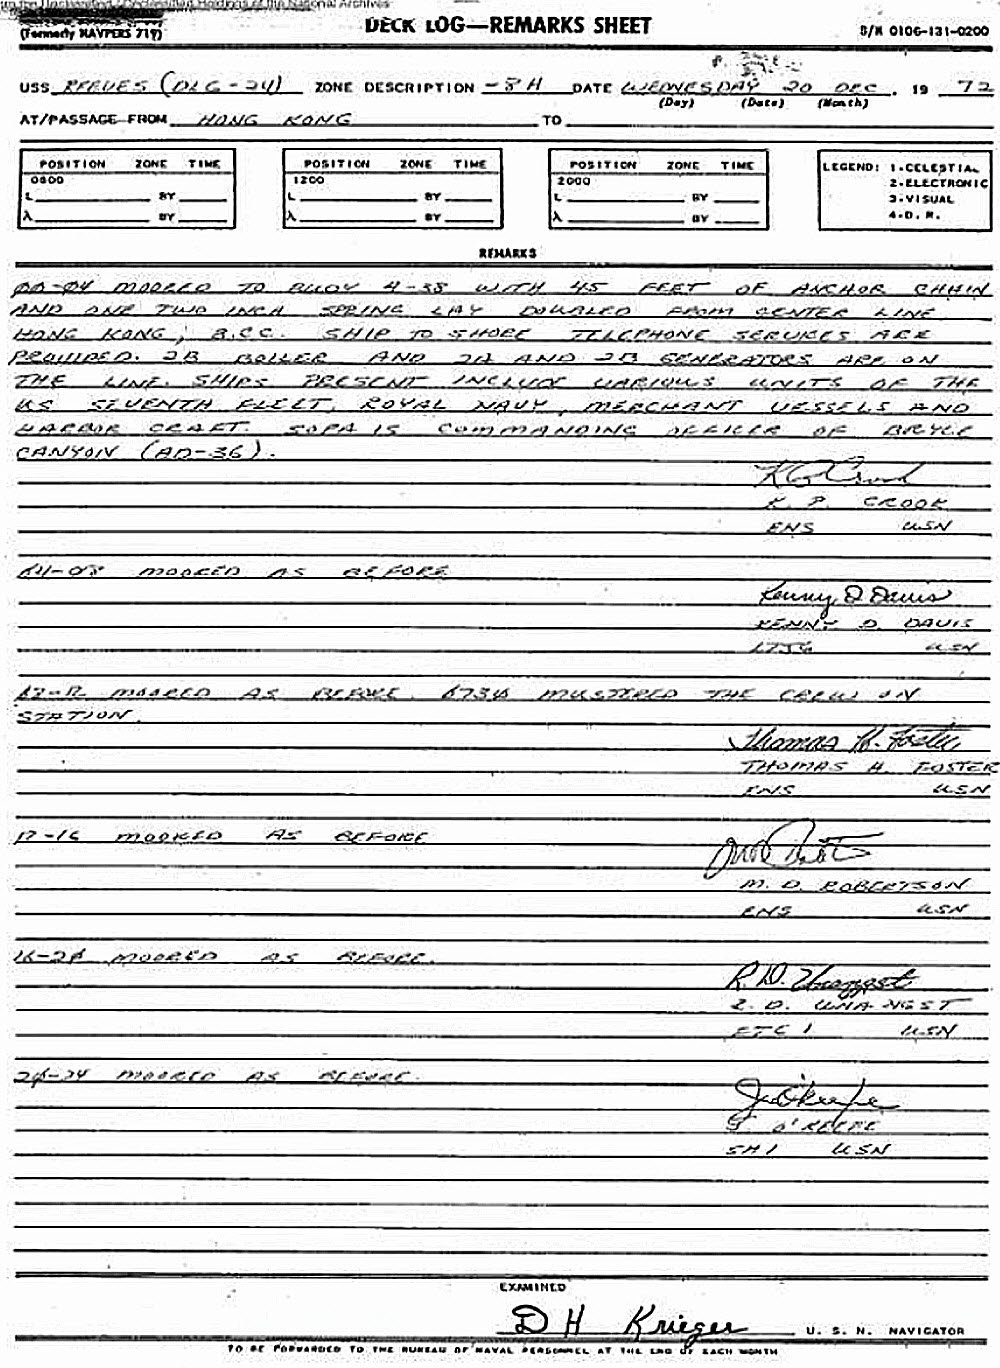 Declassified Holdings of the National Archives
(Formerly NAVPERS 719)
DECK LOG—REMARKS SHEET
S/N 0106-131-0200
USS REEVES (DLG-24) ZONE DESCRIPTION -8H DATE WEDNESDAY 20 DEC, 19 72
(Day) (Date) (Month)
AT/PASSAGE FROM HONG KONG TO
POSITION ZONE TIME
0800
L BY
λ BY
POSITION ZONE TIME
1200
L BY
λ BY
POSITION ZONE TIME
2000
L BY
λ BY
LEGEND: 1-CELESTIAL
2-ELECTRONIC
3-VISUAL
4-D. R.
REMARKS
00-04 MOORED TO BUOY A-38 WITH 45 FEET OF ANCHOR CHAIN
AND ONE TWO INCH SPRING LAY DOUBLED FROM CENTER LINE
HONG KONG, B.C.C. SHIP TO SHORE TELEPHONE SERVICES ARE
PROVIDED. 2B BOILER AND 2A AND 2B GENERATORS ARE ON
THE LINE. SHIPS PRESENT INCLUDE VARIOUS UNITS OF THE
US SEVENTH FLEET, ROYAL NAVY, MERCHANT VESSELS AND
HARBOR CRAFT. SOPA IS COMMANDING OFFICER OF BRYCE
CANYON (AD-36).
K P Crook
K. P. CROOK
ENS USN
04-08 MOORED AS BEFORE
Kenny D Davis
KENNY D. DAVIS
LTJG USN
08-12 MOORED AS BEFORE. 0730 MUSTERED THE CREW ON
STATION.
Thomas H. Foster
THOMAS H. FOSTER
ENS USN
12-16 MOORED AS BEFORE
M. D. ROBERTSON
ENS USN
16-20 MOORED AS BEFORE.
R. D. Unangst
R. D. UNANGST
ETC 1 USN
20-24 MOORED AS BEFORE.
J. O'Keefe
J. O'KEEFE
SH1 USN
EXAMINED
D H Krieger U. S. N. NAVIGATOR
TO BE FORWARDED TO THE BUREAU OF NAVAL PERSONNEL AT THE END OF EACH MONTH